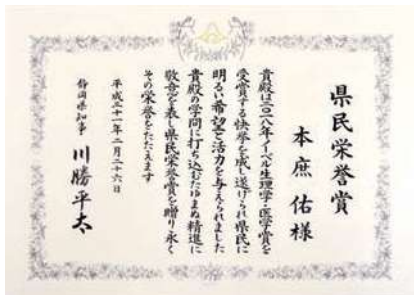 県民栄誉賞
本庶佑様
貴殿は二〇一八年ノーベル生理学・医学賞を
受賞する快挙を成し遂げられ県民に
明るい希望と活力を与えられました
貴殿の学問に打ち込むたゆまぬ精進に
敬意を表し県民栄誉賞を贈り永く
その栄誉をたたえます
平成三十一年二月二十六日
静岡県知事 川勝平太